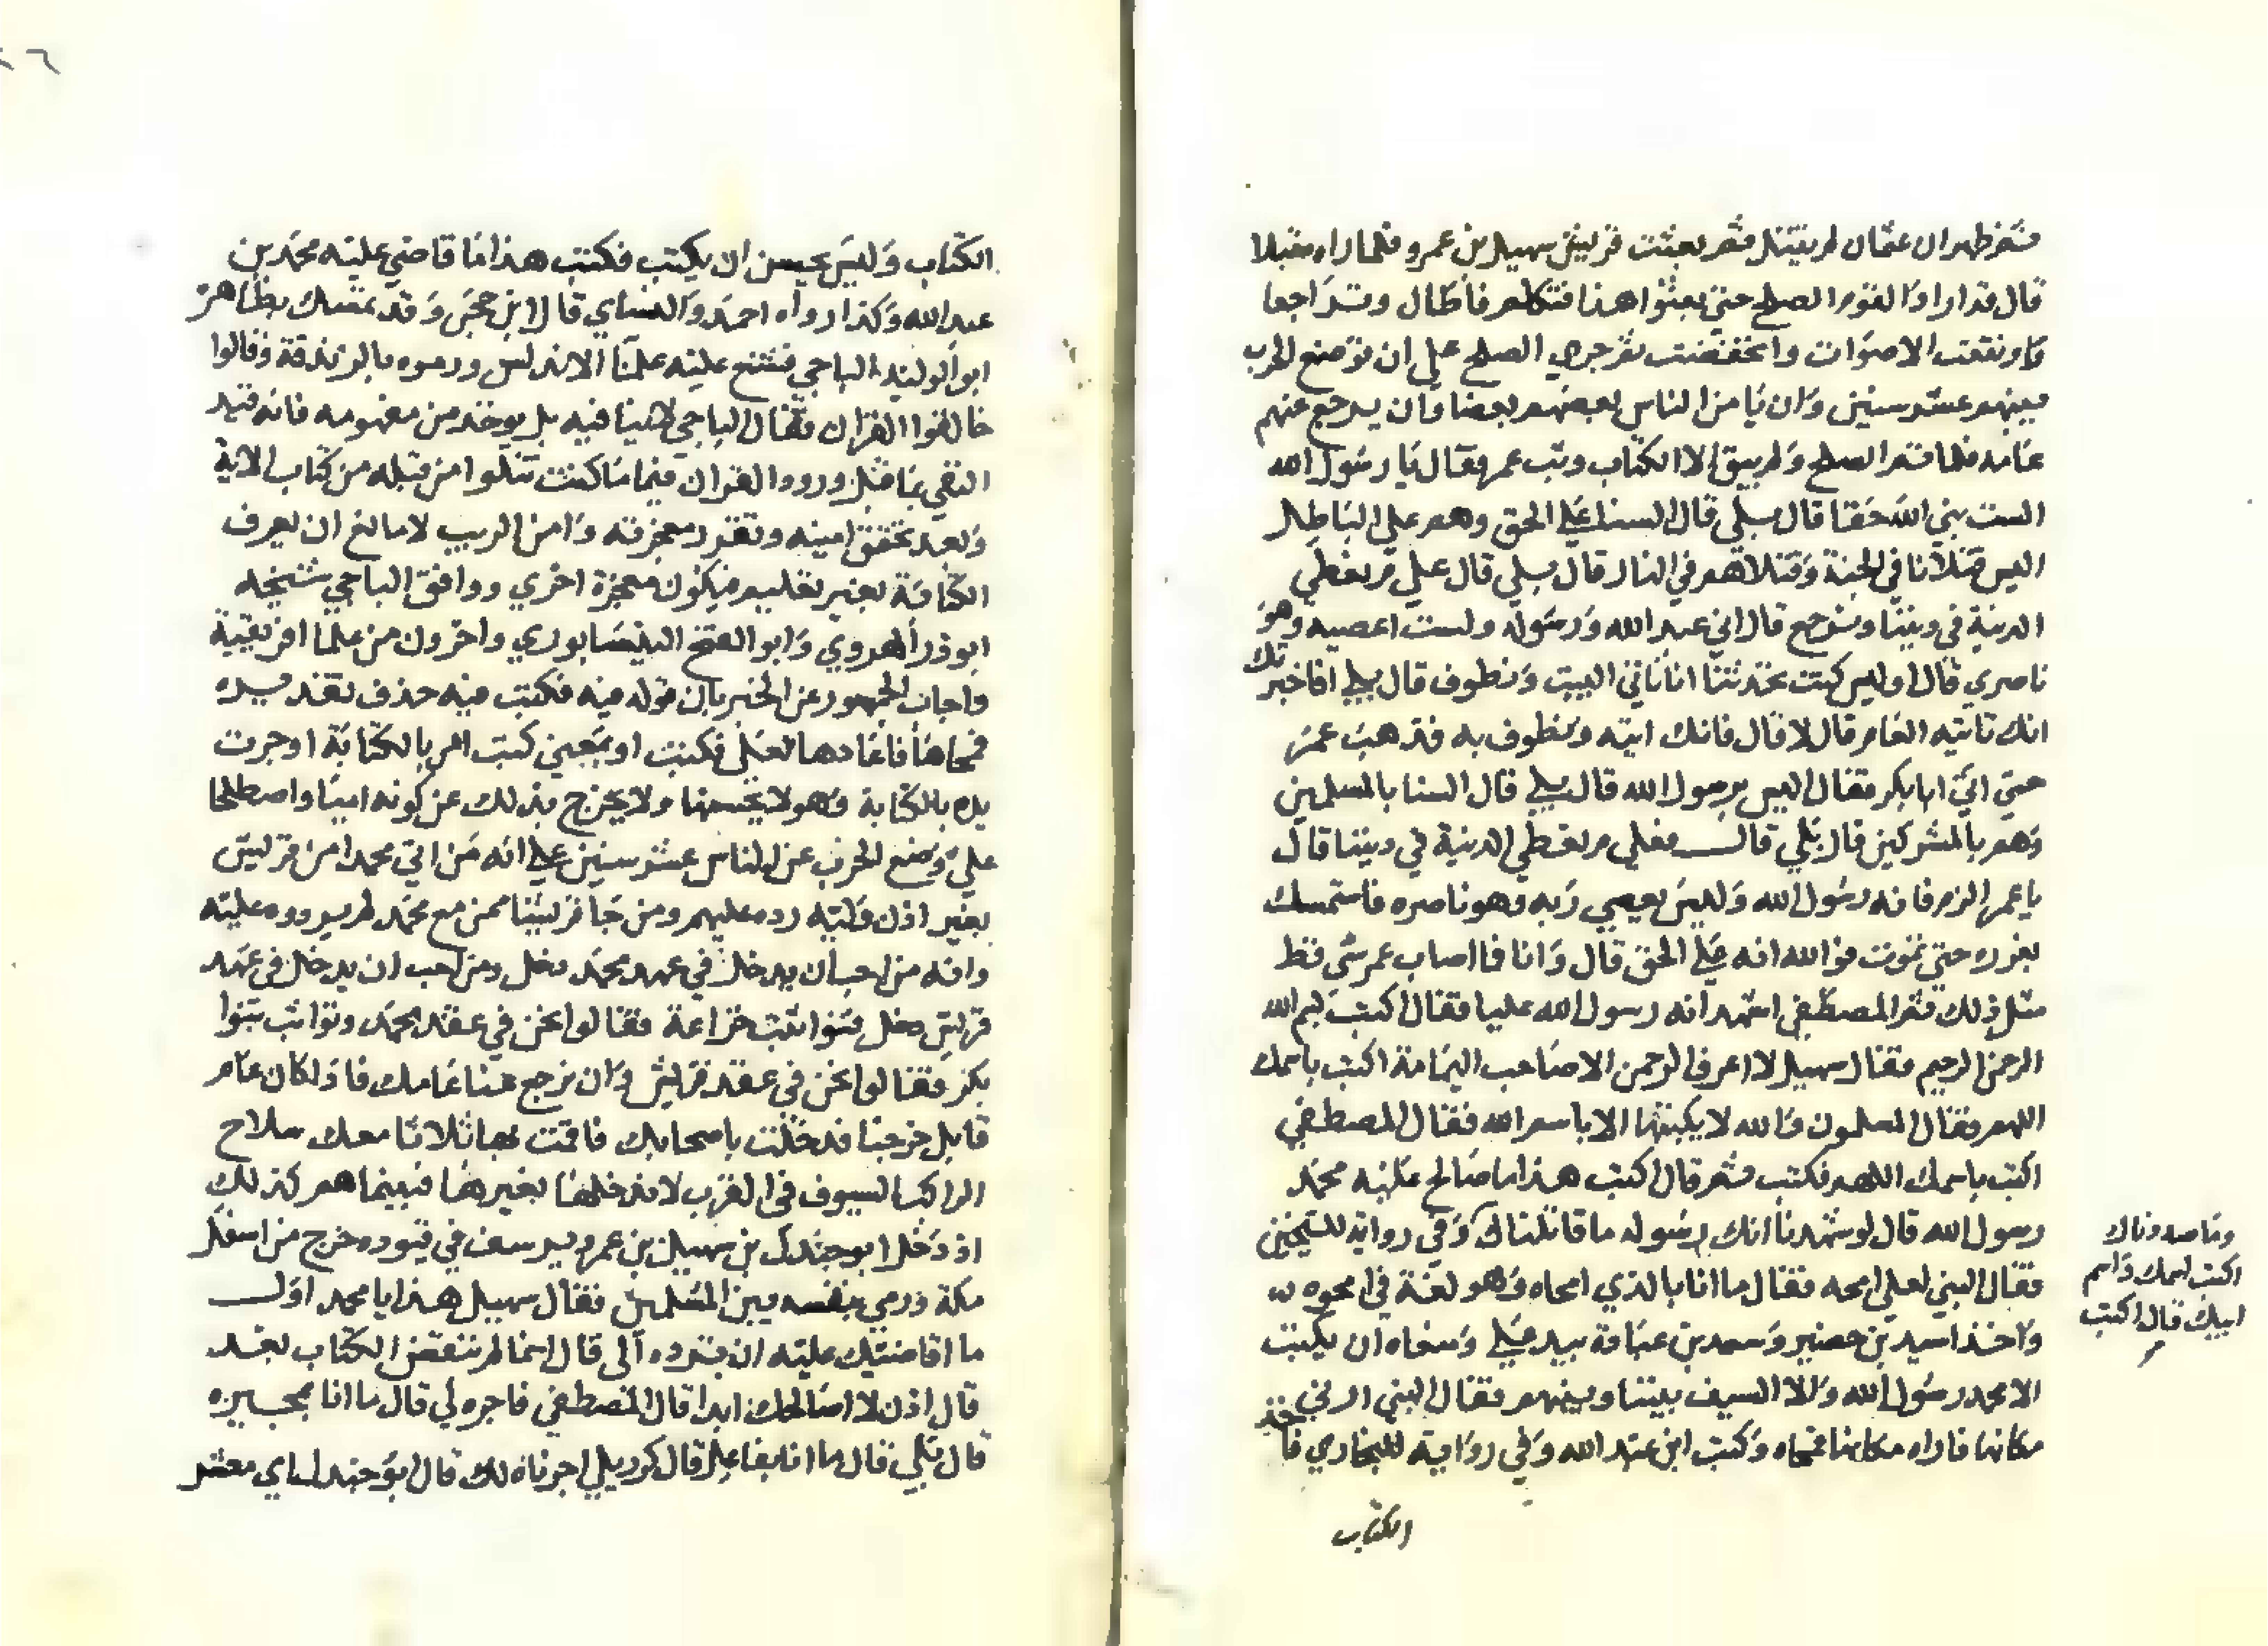 ثم ظهران عثمان لم يقتل ثم بعثت قريش سهيل بن عمرو فلما راه مقبلا
قال قد ارادا القوم الصلح حتي بعثوا هذا فتكلم فأطال وتراجعا
وارتفعت الاصوات وانخفضت ثم جري الصلح علي ان توضع الحرب
بينهم عشر سنين وان يامن الناس بعضهم بعضا وان يرجع عنهم
عامه فلما تم الصلح ولم يبق الا الكتاب وثب عمر فقال يا رسول الله
الست نبي الله حقا قال بلي قال السنا علي الحق وهم علي الباطل
اليس قتلانا في الجنة وقتلاهم في النار قال بلي قال علي م نعطي
الدنية في ديننا ونرجع قال اني عبد الله ورسوله ولست اعصيه وهو
ناصري قال اوليس كنت تحدثنا انا ناتي البيت ونطوف قال بلي افاخبرتك
انك تاتيه العام قال لا قال فانك اتيه وتطوف به فذهب عمر
حتي اتي ابا بكر فقال اليس برسول الله قال بلي قال السنا بالمسلمين
وهم بالمشركين قال بلي قال فعلي م نعطي الدنية في ديننا قال
يا عمر الزم فانه رسول الله وليس يعصي ربه وهو ناصره فاستمسك
بغرزه حتي تموت فوالله انه علي الحق قال وانا فما اصاب عمر شي قط
مثل ذلك ثم المصطفي اشهد انه رسول الله عليا فقال اكتب بسم الله
الرحمن الرحيم فقال سهيل لا اعرف الرحمن الا صاحب اليمامة اكتب باسمك
اللهم فقال المسلمون والله لا يكتبها الا باسم الله فقال المصطفي
اكتب باسمك اللهم فكتب ثم قال اكتب هذا ما صالح عليه محمد
رسول الله قال لو شهدنا انك رسوله ما قاتلناك وفي رواية للشيخين
وما صددناك
اكتب اسمك واسم
ابيك قال اكتب
فقال النبي لعلي امحه فقال ما انا بالذي امحاه وهو لغة في امحوه
واخذ اسيد بن حضير وسعد بن عبادة بيد علي ومنعاه ان يكتب
الا محمد رسول الله والا السيف بيننا وبينهم فقال النبي ارني
مكانها فاراه مكانها فمحاه وكتب ابن عبد الله وفي رواية للبخاري فاخذ
الكتاب
الكتاب وليس يحسن ان يكتب فكتب هذا ما قاضي عليه محمد بن
عبد الله وكذا رواه احمد والنساي قال ابن حجر وقد تمسك بظاهره
ابو الوليد الباجي فشنع عليه علما الاندلس ورموه بالزندقة وقالوا
خالفوا القران فقال الباجي لا ينافيه بل يوخذ من مفهومه فانه قيد
النفي بما قبل ورود القران فيما ما كنت تتلوا من قبله من كتاب الاية
وبعد تحقق اميته وتقرر معجزته وامن الريب لا مانع ان يعرف
الكتابة بغير تعليم فيكون معجزة اخري ووافق الباجي شيخه
ابو ذر الهروي وابو الفتح النيسابوري واخرون من علما افريقية
واجاب الجمهور عن الخبر بان قوله فيه فكتب فيه حذف تقديره
فمحاها فاعادها لعلي فكتب او بمعني كتب امر بالكتابة او جرت
يده بالكتابة وهو لا يحسنها ولا يخرج بذلك عن كونه اميا واصطلحا
علي وضع الحرب عن الناس عشر سنين علي انه من اتي محمدا من قريش
بغير اذن وليه رده عليهم ومن جا قريشا ممن مع محمد لم يردوه عليه
وانه من احب ان يدخل في عهد محمد دخل ومن احب ان يدخل في عهد
قريش دخل فتواثبت خزاعة فقالوا نحن في عقد محمد وتواثب بنوا
بكر فقالوا نحن في عقد قريش وان ترجع عنا عامك فاذا كان عام
قابل خرجنا فدخلت باصحابك فاقمت بها ثلاثا معك سلاح
الراكب السيوف في القرب لا تدخلها بغيرها فبينما هم كذلك
اذ دخل ابو جندل بن سهيل بن عمرو يرسف في قيوده خرج من اسفل
مكة ورمي بنفسه بين المسلمين فقال سهيل هذا يا محمد اول
ما اقاضيك عليه ان ترده الي قال انما لم ننقض الكتاب بعد
قال اذن لا اصالحك ابدا قال المصطفي فاجره لي قال ما انا بمجيره
قال بلي قال ما انا بفاعل قال مكرز بلي اجرناه لك قال ابو جندل اي معشر